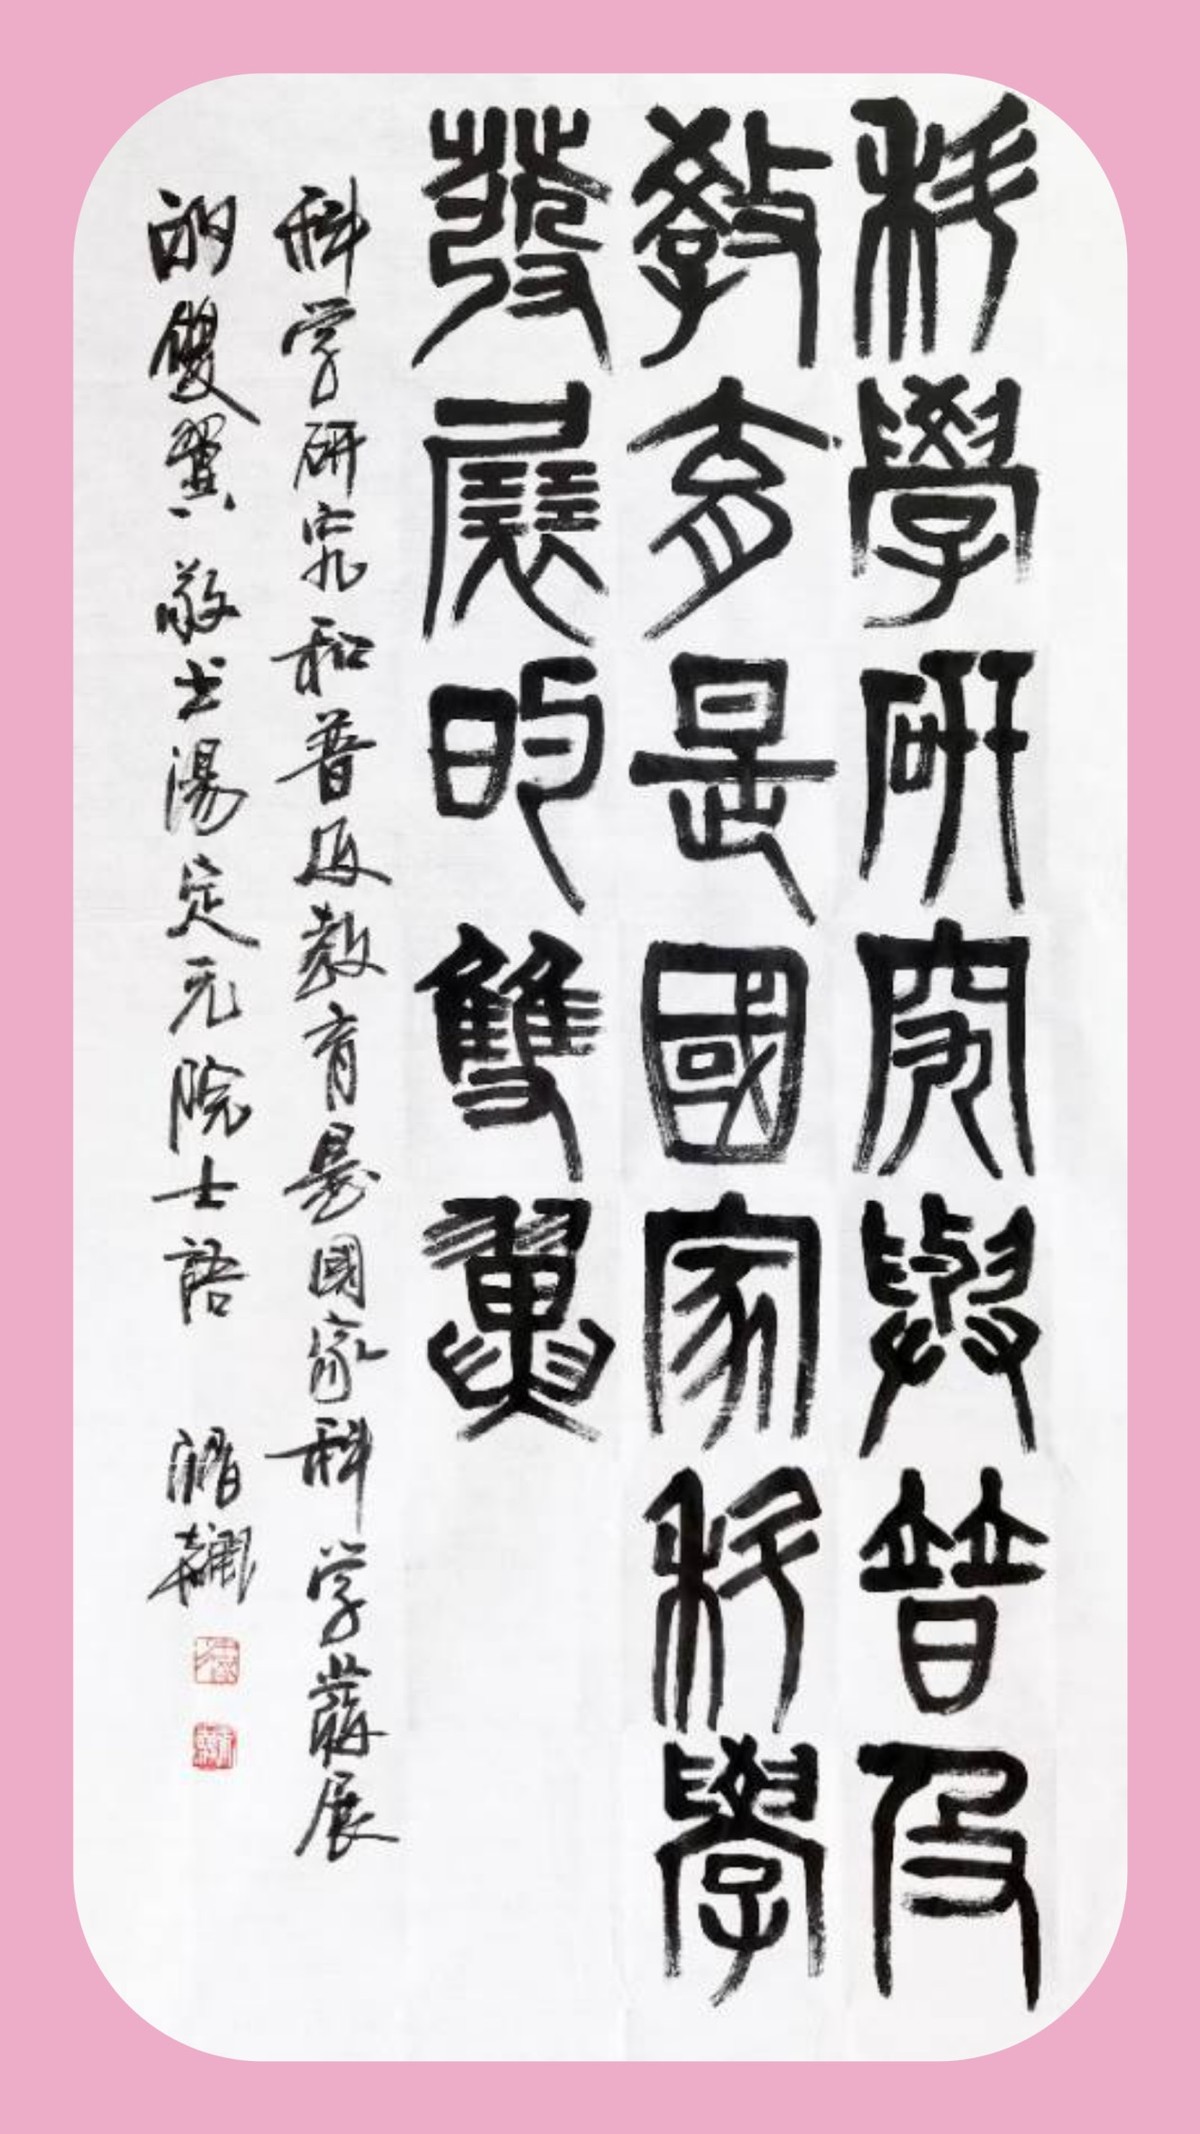 科學研究與普及
教育是國家科學
發展的雙翼
科学研究和普及教育是國家科学發展
的雙翼 敬书湯定元院士語